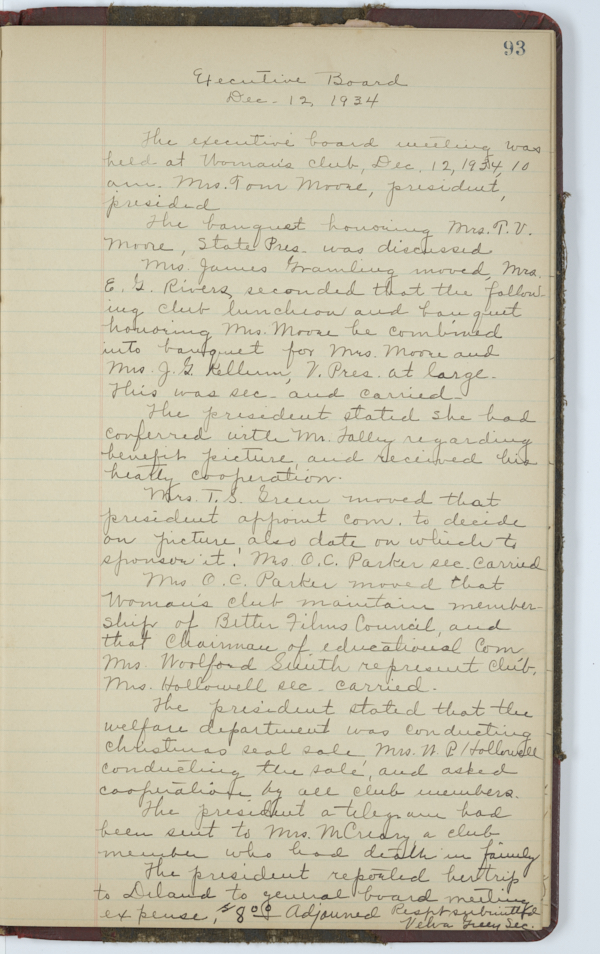 93
Executive Board
Dec. 12, 1934
The executive board meeting was
held at Woman's club, Dec. 12, 1934, 10
a.m. Mrs. Tom Moore, president,
presided
The banquet honoring Mrs. T. V.
Moore, State Pres. was discussed
Mrs. James Gramling moved, Mrs.
E. G. Rivers seconded that the follow-
ing club luncheon and banquet
honoring Mrs. Moore be combined
into banquet for Mrs. Moore and
Mrs. J. G. Kellum, V. Pres. at large.
This was sec. and carried.
The president stated she had
conferred with Mr. Talley regarding
benefit picture, and received his
hearty cooperation.
Mrs. T. S. Green moved that
president appoint com. to decide
on picture also date on which to
sponsor it. Mrs. O.C. Parker sec. Carried
Mrs O.C. Parker moved that
Woman's club maintain member-
ship of Better Films Council, and
that Chairman of educational Com
Mrs. Woolford Smith represent club.
Mrs. Hollowell sec. carried.
The president stated that the
welfare department was conducting
christmas seal sale Mrs. W. P. Hollowell
conducting the sale, and asked
cooperation by all club members.
The president a telegram had
been sent to Mrs. McCreary a club
member who had death in family
The president reported her trip
to Deland to general board meeting
expense, $8.00 Adjourned Respt. submitted
Velva Green Sec.